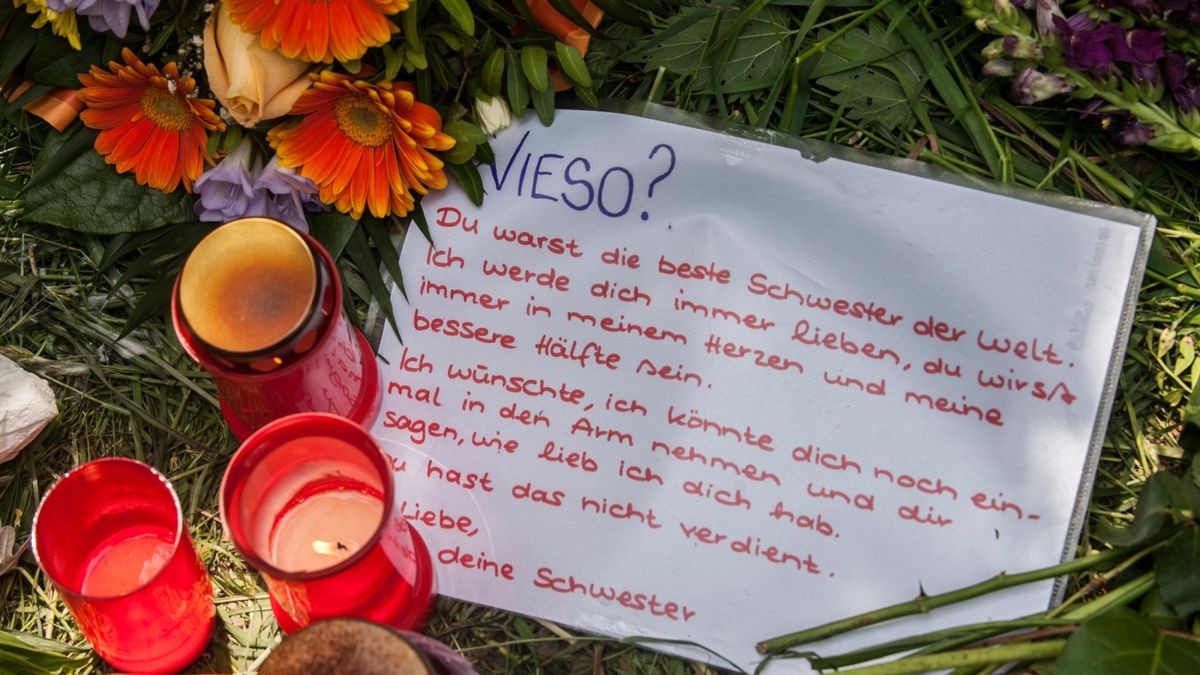 WIESO?
Du warst die beste Schwester der Welt.
Ich werde dich immer lieben, du wirst
immer in meinem Herzen und meine
bessere Hälfte sein.
Ich wünschte, ich könnte dich noch ein-
mal in den Arm nehmen und dir
sagen, wie lieb ich dich hab.
Du hast das nicht verdient.
Liebe,
deine Schwester